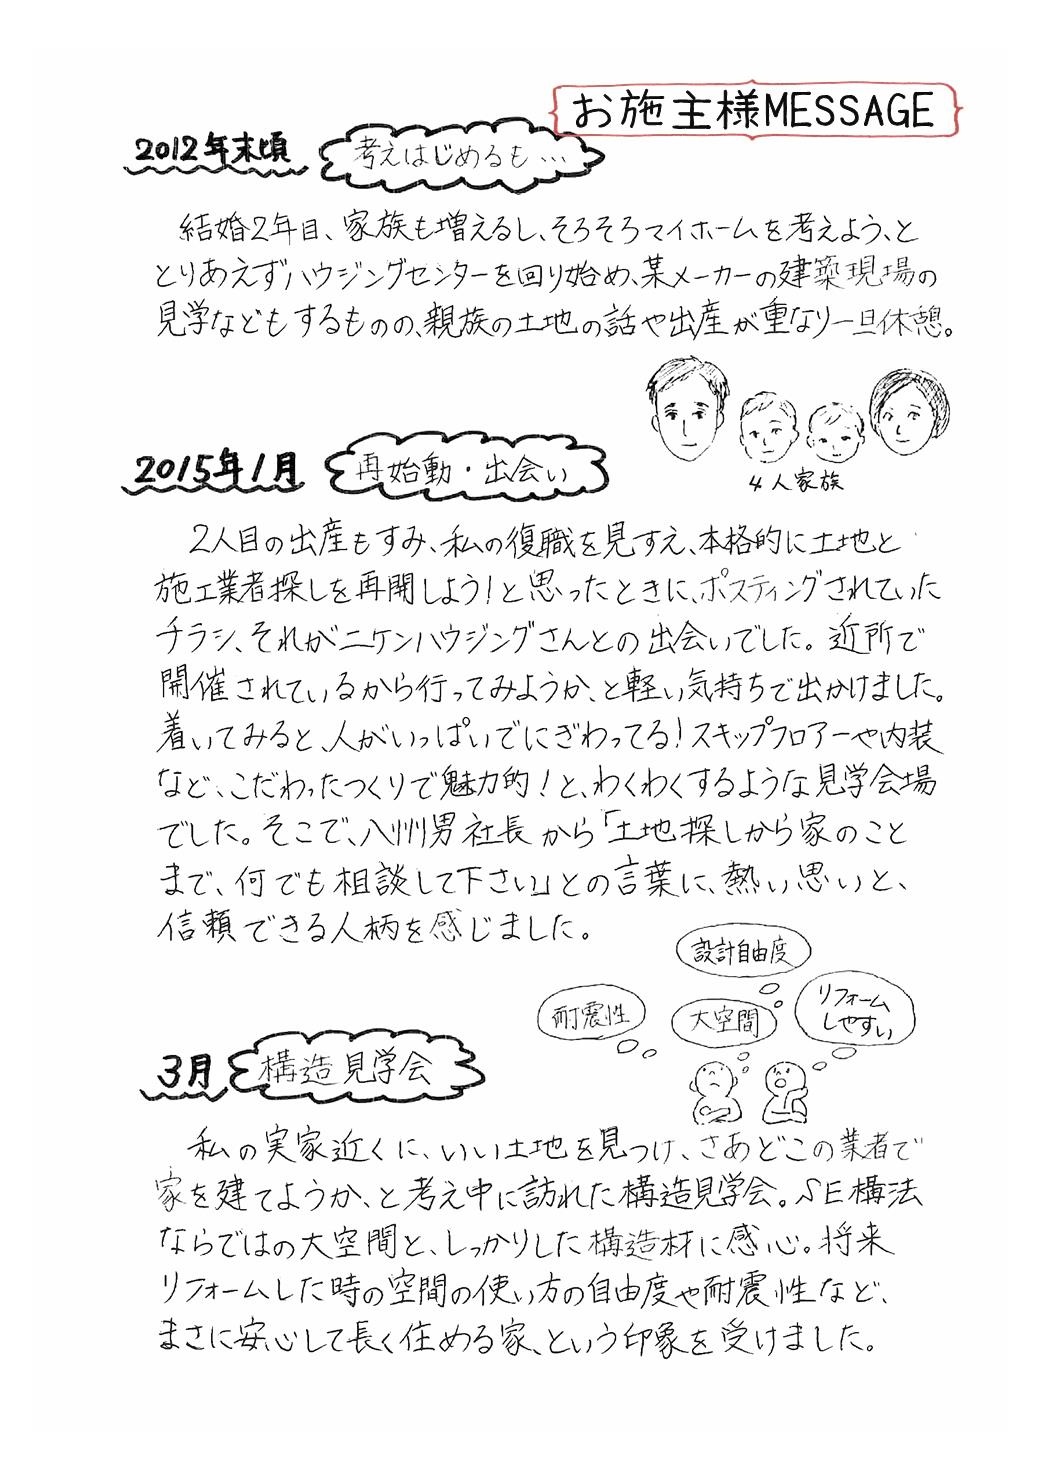 お施主様MESSAGE
2012年末頃 考えはじめるも…
結婚2年目、家族も増えるし、そろそろマイホームを考えよう、と
とりあえずハウジングセンターを回り始め、某メーカーの建築現場の
見学などもするものの、親族の土地の話や出産が重なり一旦休憩。
4人家族
2015年1月 再始動・出会い
2人目の出産もすみ、私の復職を見すえ、本格的に土地と
施工業者探しを再開しよう!と思ったときに、ポスティングされていた
チラシ、それがニケンハウジングさんとの出会いでした。近所で
開催されているから行ってみようか、と軽い気持ちで出かけました。
着いてみると、人がいっぱいでにぎわってる!スキップフロアーや内装
など、こだわったつくりで魅力的!と、わくわくするような見学会場
でした。そこで、八州男社長から「土地探しから家のこと
まで、何でも相談して下さい」との言葉に、熱い思いと、
信頼できる人柄を感じました。
設計自由度
耐震性
大空間
リフォーム
しやすい
3月 構造見学会
私の実家近くに、いい土地を見つけ、さあどこの業者で
家を建てようか、と考え中に訪れた構造見学会。SE構法
ならではの大空間と、しっかりした構造材に感心。将来
リフォームした時の空間の使い方の自由度や耐震性など、
まさに安心して長く住める家、という印象を受けました。